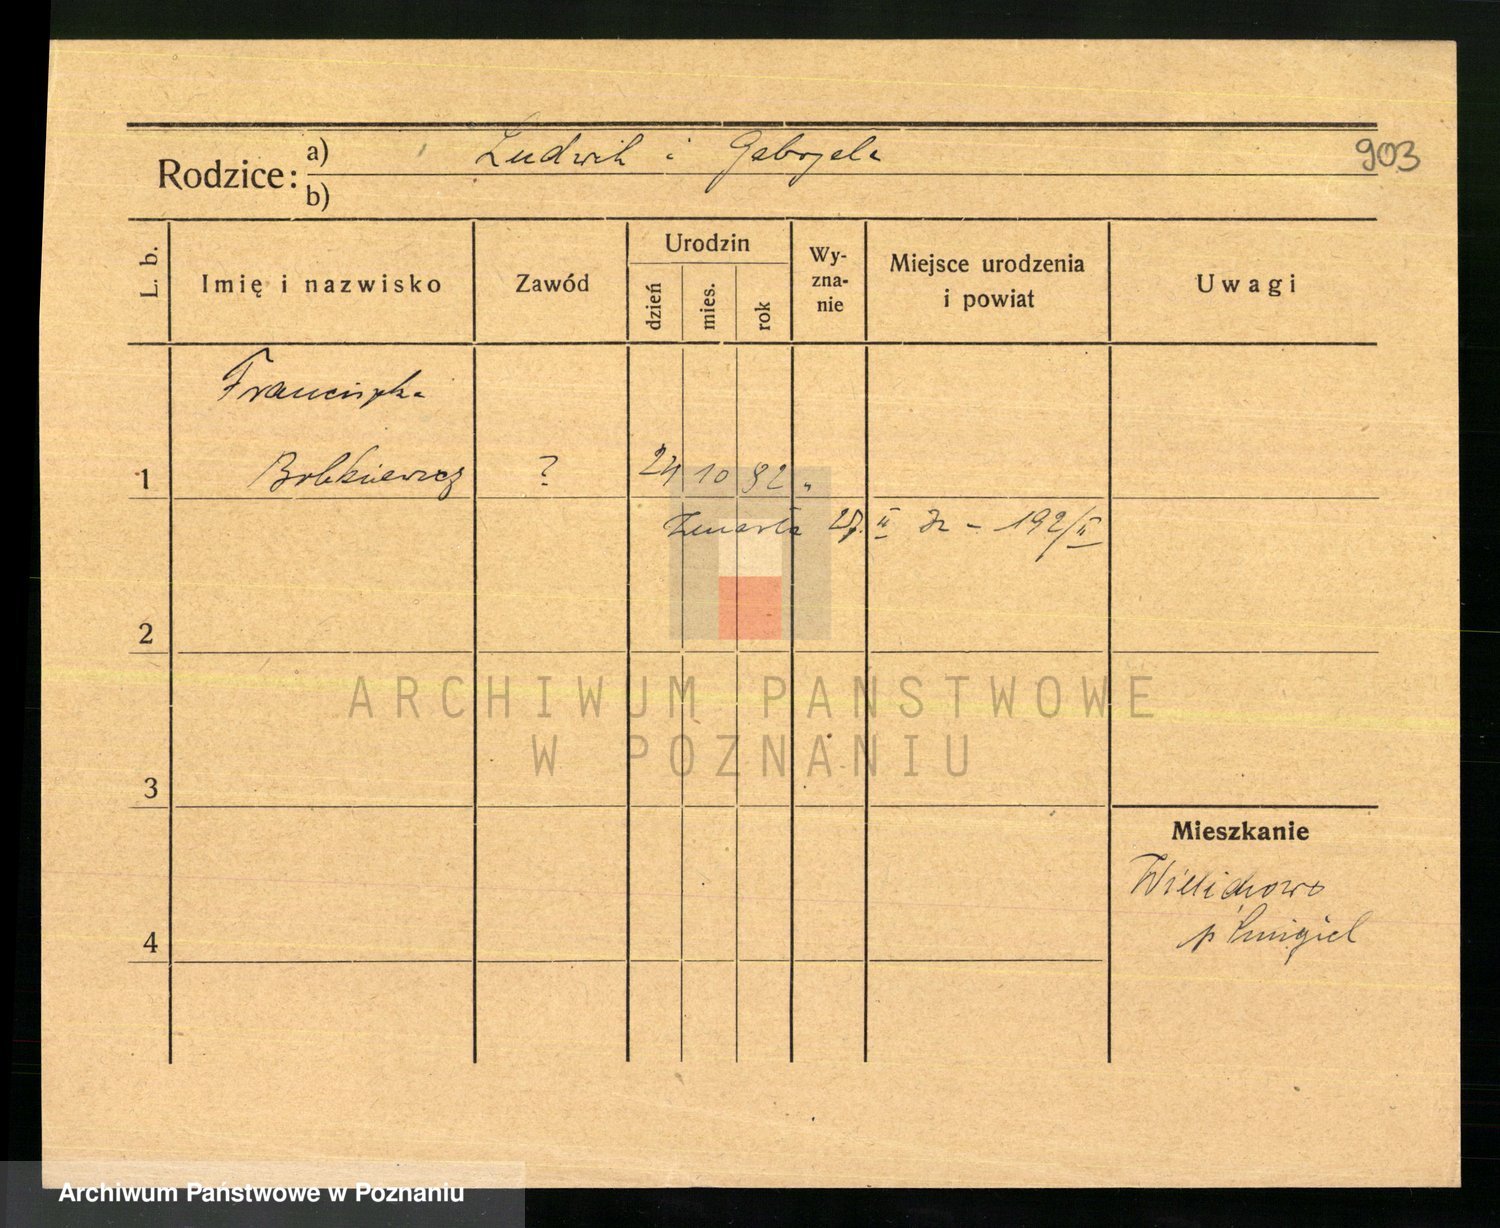 Rodzice: a) Ludwik i Gabryela
b)
903
L. b.
Imię i nazwisko
Zawód
Urodzin
dzień
mies.
rok
Wy-
zna-
nie
Miejsce urodzenia
i powiat
Uwagi
Franciszka
1 Bobkiewicz ? 24 10 92 "
Zmarła 27. II 192/II
2
ARCHIWUM PAŃSTWOWE
W POZNANIU
3
Mieszkanie
Wielichowo
p Śmigiel
4
Archiwum Państwowe w Poznaniu